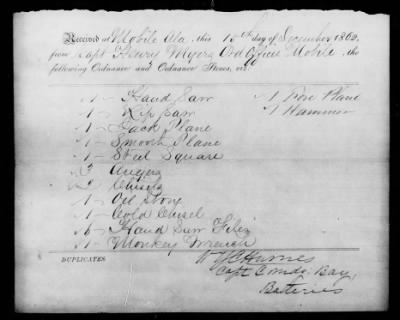 Received at Mobile Ala this 15th day of December 1862,
from Capt Henry Myers Ord Officer Mobile, the
following Ordnance and Ordnance Stores, viz:
1 — Hand Saw
1 — Rip Saw
1 — Jack Plane
1 — Smooth Plane
1 — Steel Square
3 Augers
2 Chisels
1 — Oil Stone
1 — Cold Chisel
Hand Saw Files
1 — Monkey Wrench
1 Fore Plane
1 Hammer
DUPLICATES
Capt Comdg Bay
Batteries